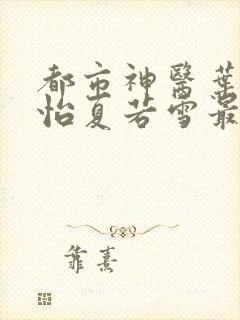 都市神醫葉
怡夏若雪最
靠熹